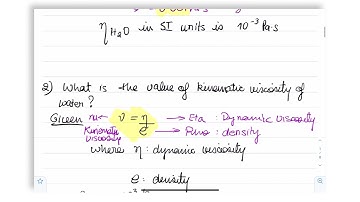 η H₂O in SI units is 10⁻³ Pa·s
2) What is the value of kinematic viscosity of
water?
Given nu ← ν = η/ρ → Eta : Dynamic viscosity
Kinematic viscosity → Rho : density
where η : dynamic viscosity
ρ : density